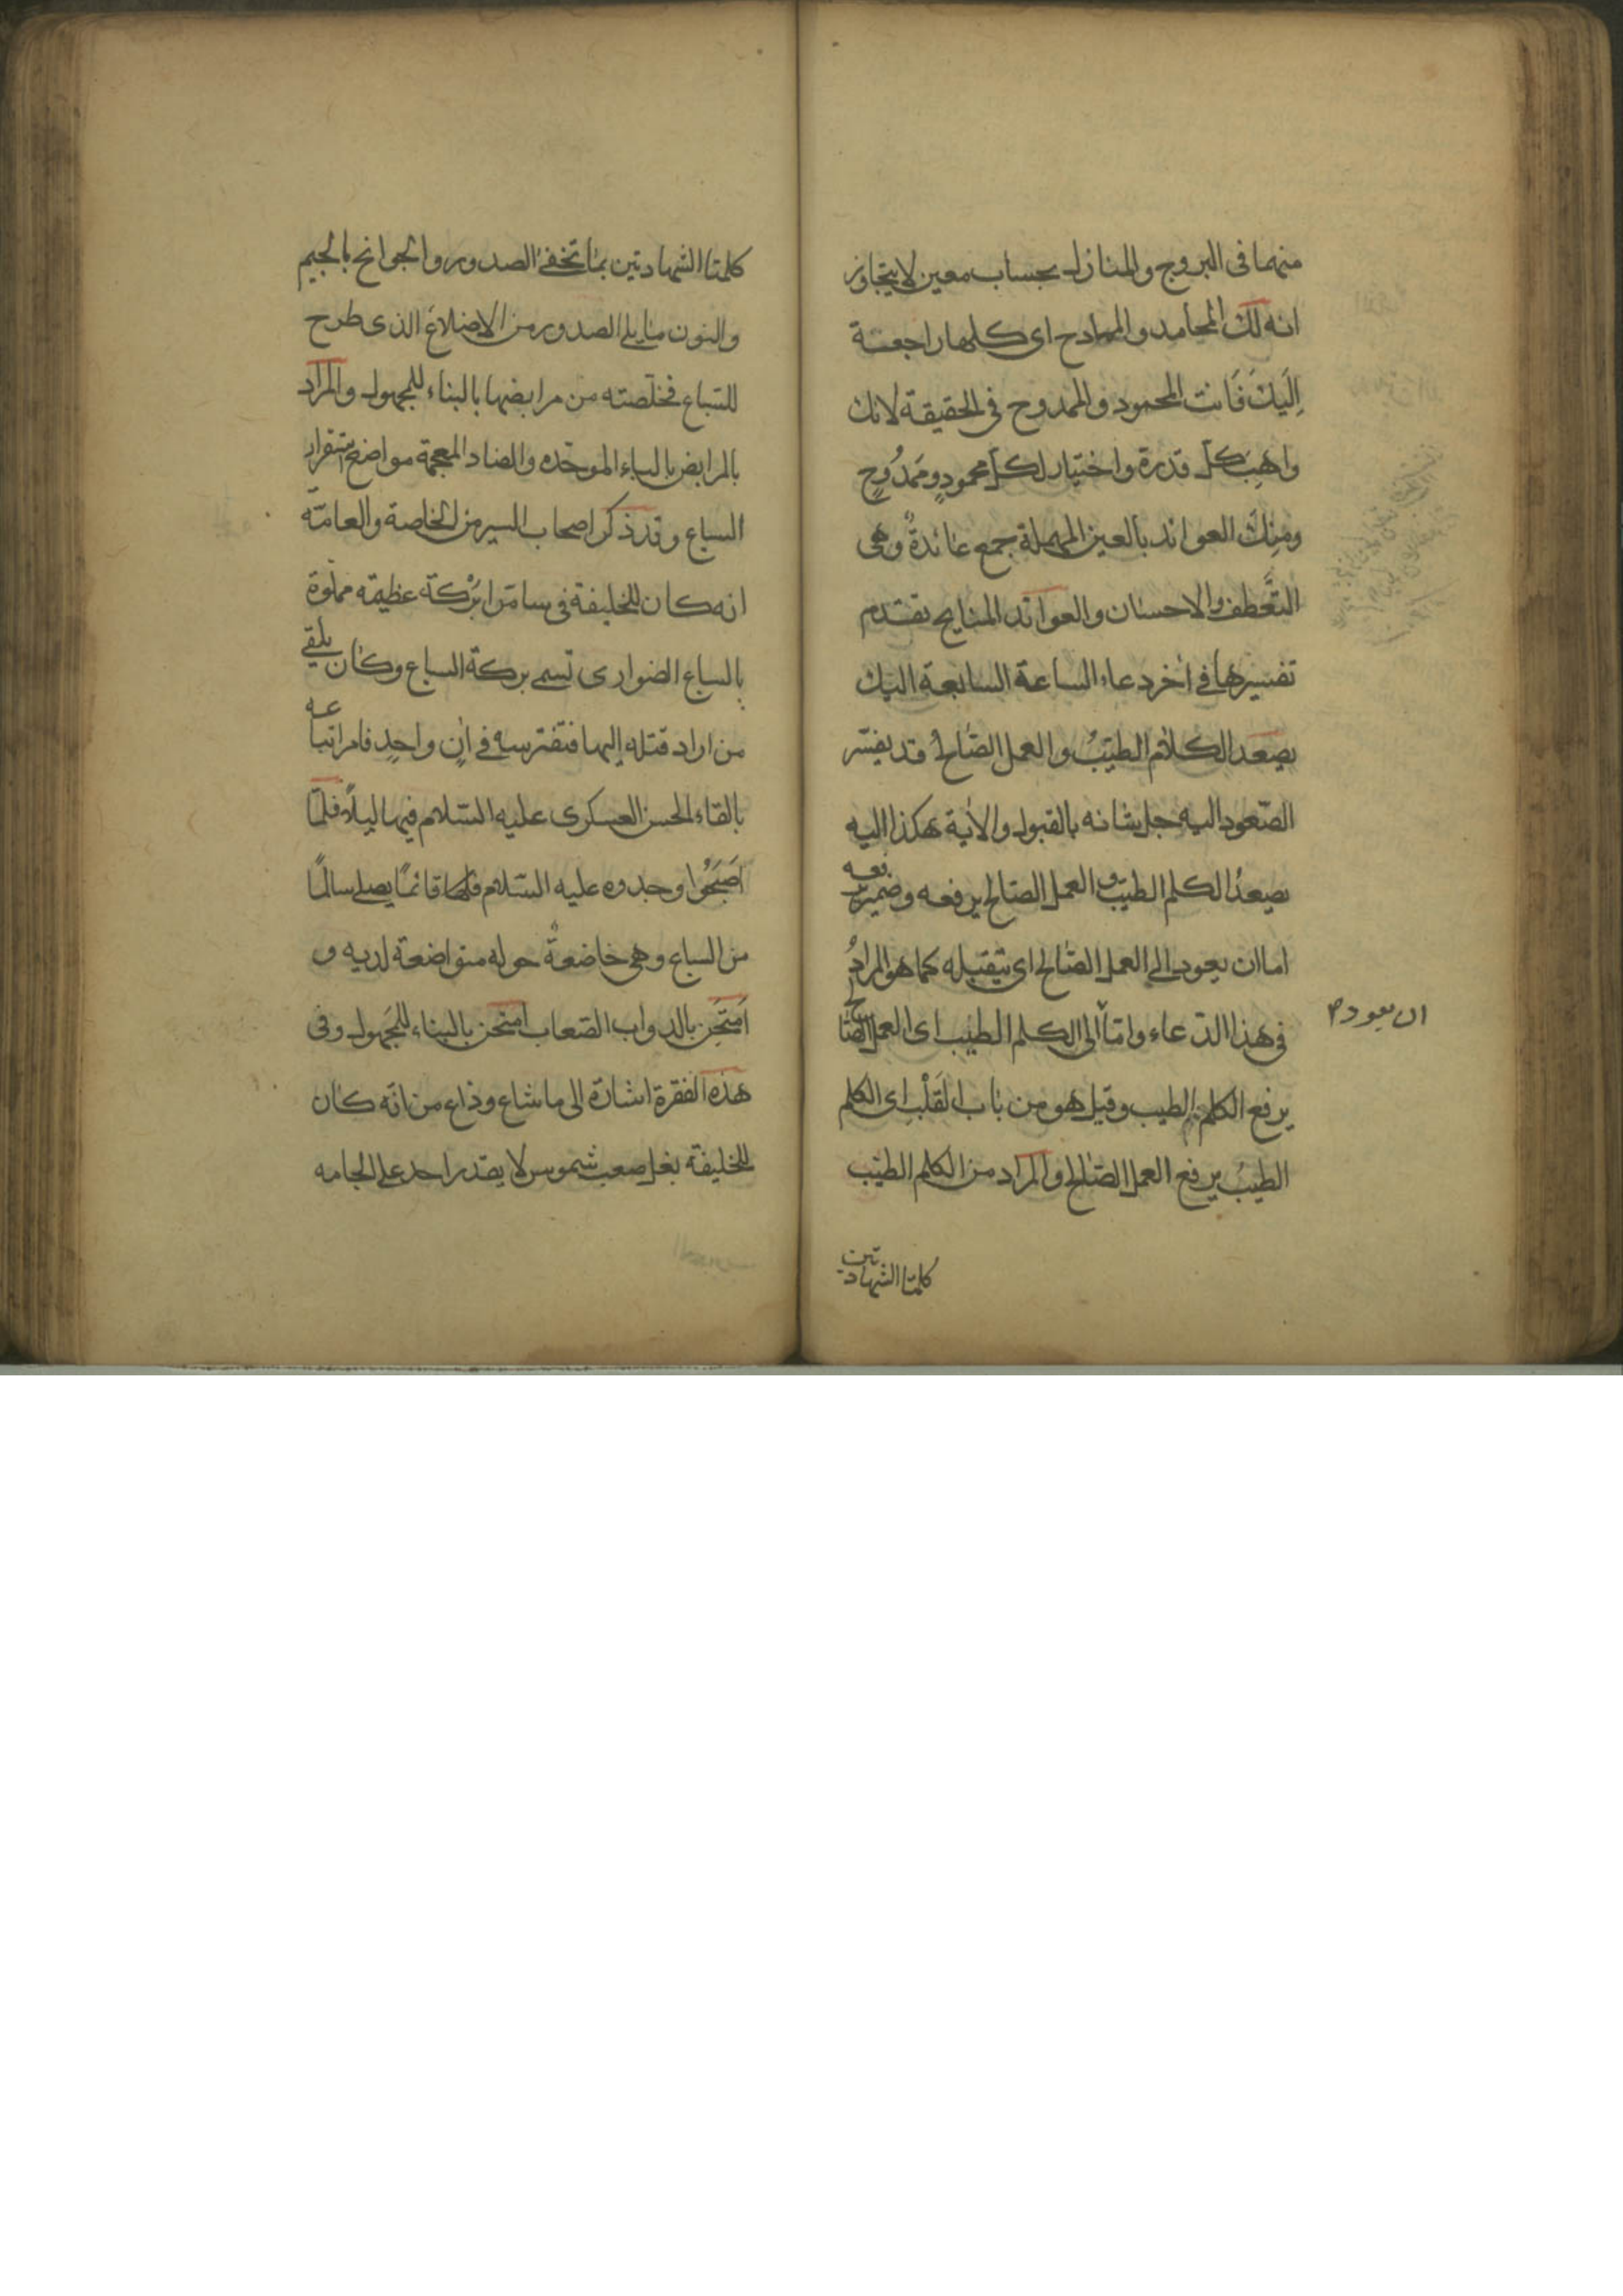 منهما فى البروج والمنازل بحساب معين لا يتجاوز
انه لك المحامد والممادح اى كلها راجعة
اِلَيكَ فَانت المحمود والممدوح فى الحقيقة لانك
واهب كل قدرة واختيار لكل محمودٍ ومَمدُوحٍ
ومنك العوائد بالعين المهملة جمع عائدةٌ وهى
التَّعطف والاحسان والعوائد المنايح تقدم
تفسيرها فى اخر دعاء الساعة السابعة اليك
يصعد الكلام الطيّبُ والعمل الصّالحُ قد يفسّر
الصّعود اليه جل شانه بالقبول والاٰية هكذا اليه
يصعدُ الكلم الطيّب والعمل الصّالح يرفعه وضمير يرفعه
اما ان يعود الى العمل الصّالح اى يتقبله كما هو المرادُ
فى هذا الدّعاء وامّا الى الكلم الطيب اى العمل الصّالح
ان يعود م
يرفع الكلم الطيب وقيل هو من باب القَلْب اى الكلم
الطيبُ يرفع العمل الصّالح والمراد من الكلم الطيّب
كلمتا الشهادتين
كلمتا الشهادتين بما تخفى الصدور والجوانح بالجيم
والنون ما يلى الصدور من الاضلاع الذى طرح
للسّباع فخلّصته من مرابضها بالبناء للمجهول والمراد
بالمرابض بالباء الموحّده والضاد المعجمة مواضع استقرار
السباع وقد ذكر اصحاب السير من الخاصة والعامّة
انه كان للخليفة فى سامرّا بْركة عظيمه مملوة
بالسباع الضوارى تسمى بركة السباع وكان يلقى
من اراد قتله إليها فتفترسه فى اٰنٍ واحدٍ فامر اتباعه
بالقاء الحسن العسكرى عليه السّلام فيها ليلاً فلمّا
اَصبَحُوا وجدوه عليه السّلام فيها قائمًا يصلى سالمًا
من السباع وهى خاضعةٌ حوله متواضعة لديه و
اَمتَحن بالدواب الصّعاب امتحن بالبناء للمجهول وفى
هذه الفقرة اشارة الى ما شاع وذاع من انّه كان
للخليفة بغل صعب شموس لا يقدر احد على الجامه